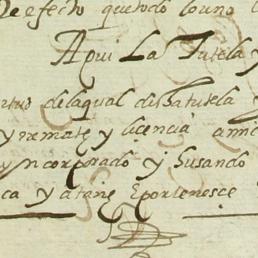 efecto quetodo louno
Aqui La Tutela y
rtud delaqual dichatutela y
y remate y licencia amic
yncorporado y Husando
ca y atane Eportenesce